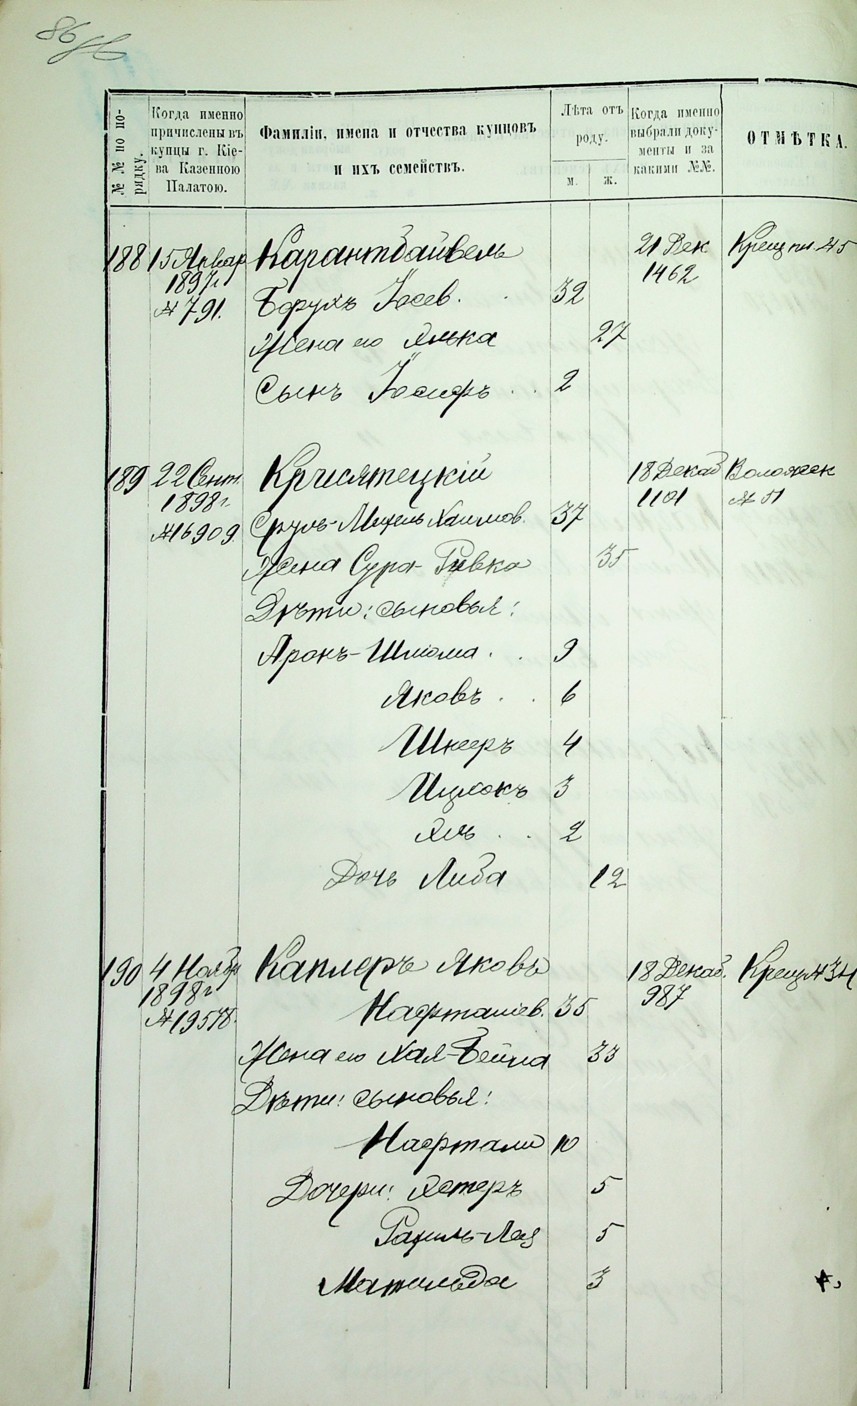 86
№№ по по-
рядку.
Когда именно
причислены въ
купцы г. Кіе-
ва Казенною
Палатою.
Фамиліи, имена и отчества купцовъ
и ихъ семействъ.
Лѣта отъ
роду.
м. ж.
Когда именно
выбрали доку-
менты и за
какими №№.
ОТМѢТКА.
188 15 Январ Карантбайвель 21 Дек Крещ пл. 45
1897 г. 1462
№ 791. Борухъ Іосев. 32
Жена его Хайка 27
Сынъ Іосифъ 2
189 22 Сент. 18 Декаб
1898 г. 1101 № 51
№ 16909. Сруль-Михель Хаимов. 37
Жена Сура-Ривка 35
Дѣти: сыновья:
Аронъ-Шліома 9
Яковъ 6
Шнееръ 4
Ицхокъ 3
2
Дочь Либа 12
190 4 Ноябр Каплеръ Яковъ 18 Декаб. Крещ № 34
1898 г. 987
№ 19578. Нафталіев. 35
Жена его Хая-Бейла 33
Дѣти: сыновья:
Нафтали 10
Дочери: Эстеръ 5
Рахиль-Лея 5
Матильда 3